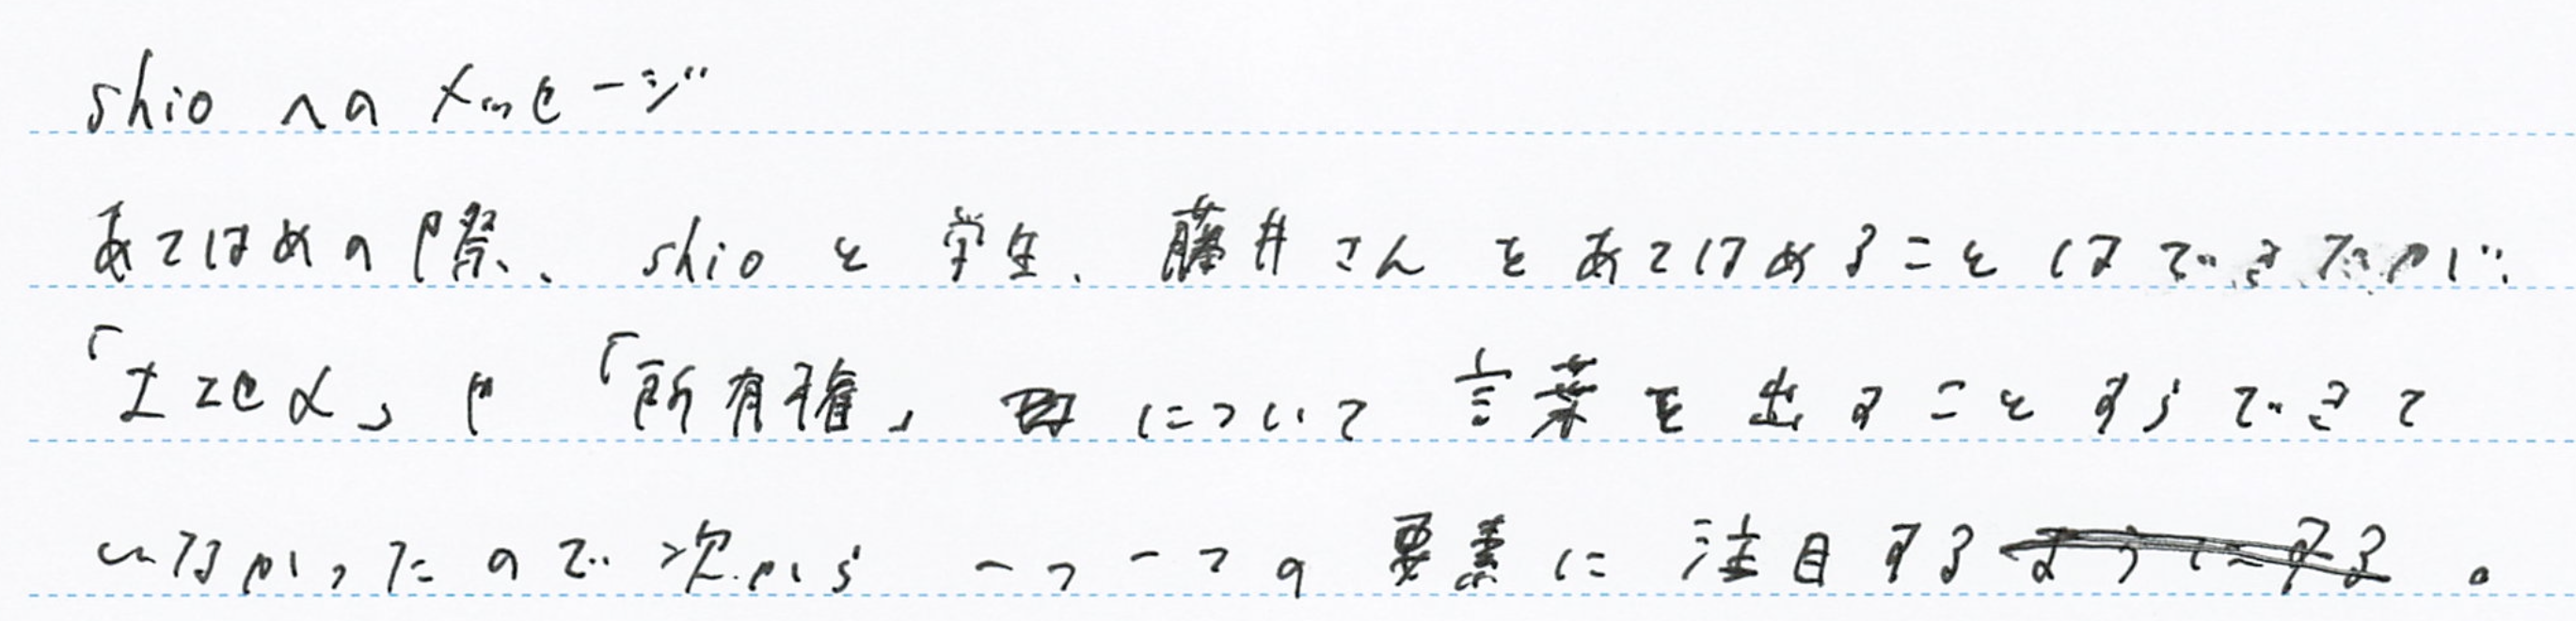 shioへのメッセージ
あてはめの際、shioと学生、藤井さんをあてはめることはできたが、
「土地」や「所有権」について言葉を出すことすらできて
いなかったので次から一つ一つの要素に注目する。